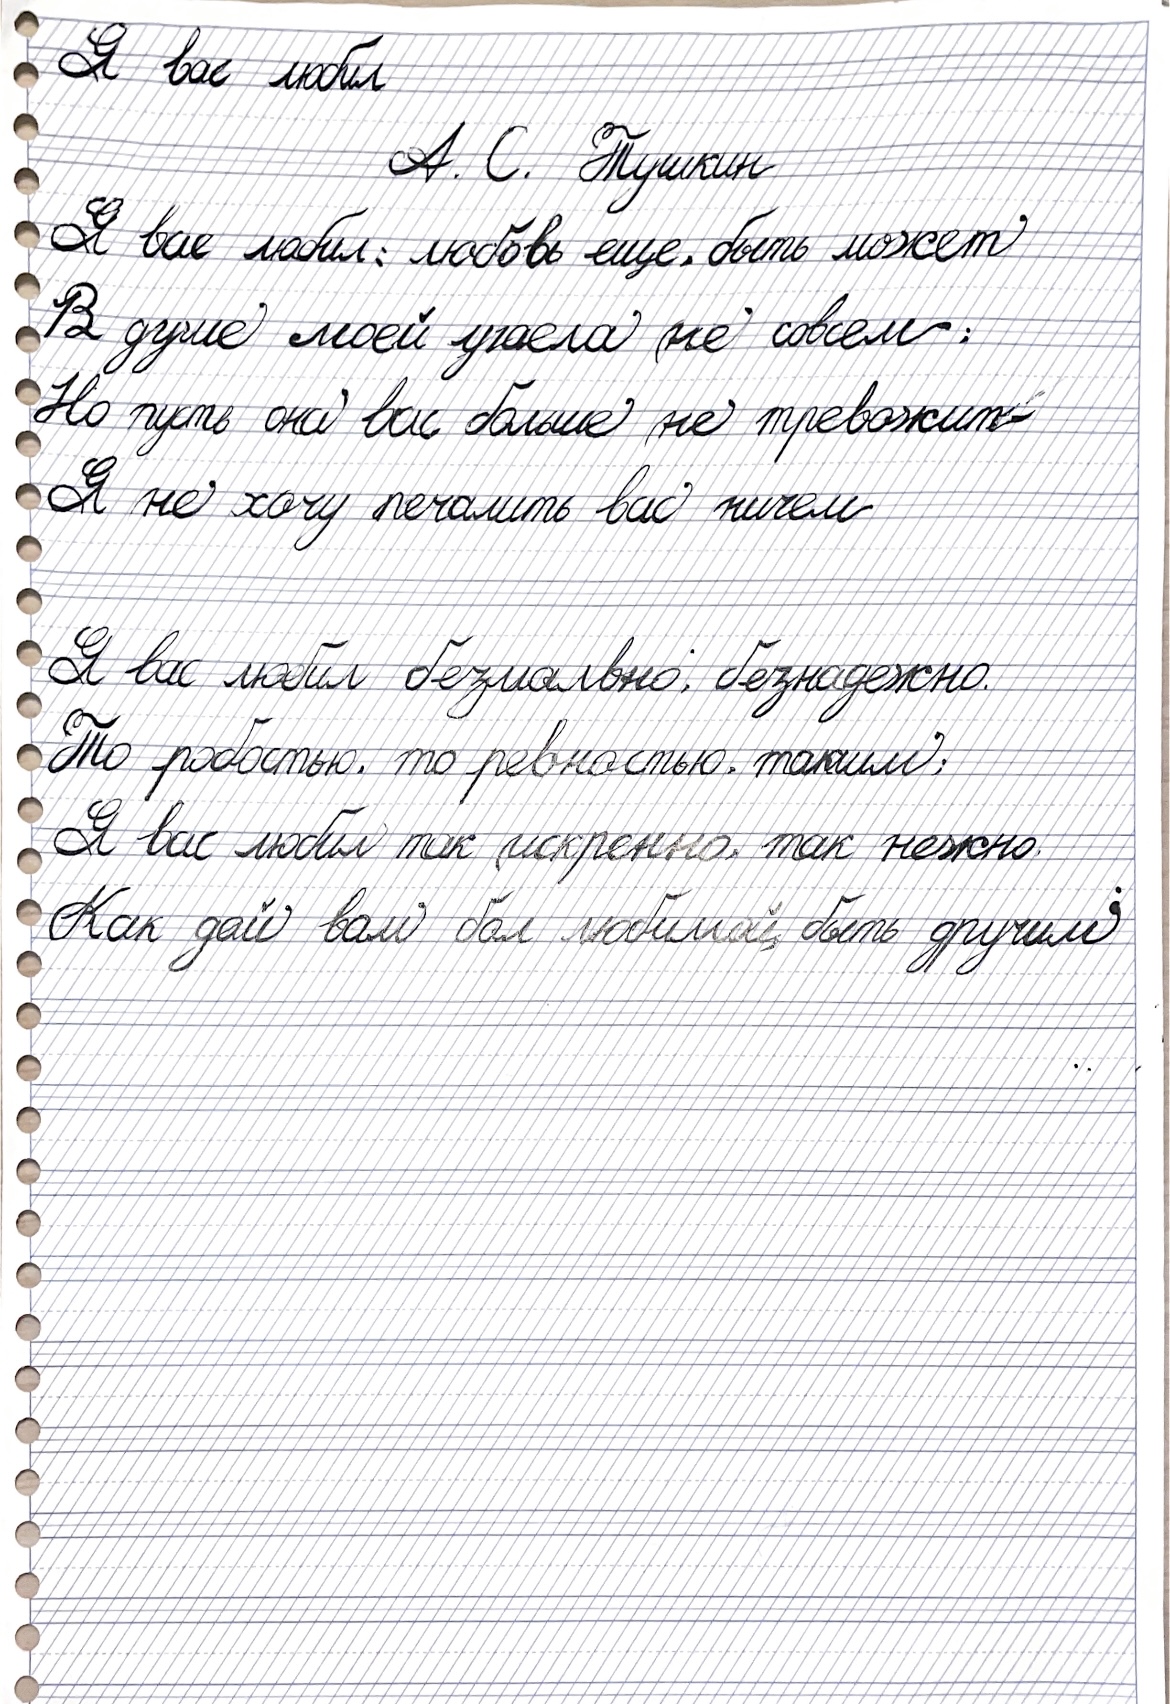 Я вас любил
А. С. Пушкин
Я вас любил: любовь еще, быть может
В душе моей угасла не совсем;
Но пусть она вас больше не тревожит
Я не хочу печалить вас ничем
Я вас любил безмальвно, безнадежно.
То робостью, то ревностью. таким;
Я вас любил так искренно, так нежно.
Как дай вам бог любимой быть другим